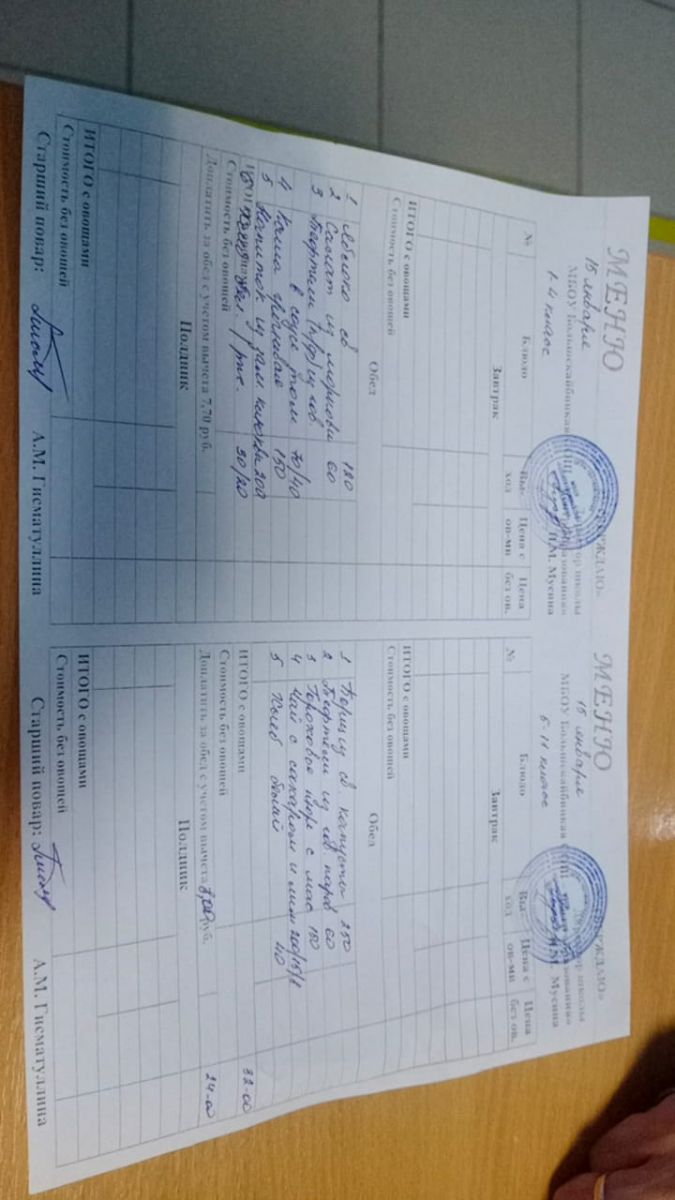 МЕНЮ
«УТВЕРЖДАЮ»
15 января
МБОУ Большекайбицкая
1-4 класс
П.М. Мусина
№
Блюдо
Вы-ход
Цена с ов-ми
Цена без ов.
Завтрак
ИТОГО с овощами
Стоимость без овощей
Обед
1 Яблоко св 120
2 Салат из моркови 60
3 Тефтели
в соусе том 70/40
4 Каша гречневая 150
5 Напиток из зам. 200
30/20
Стоимость без овощей
Доплатить за обед с учетом вычета 7,70 руб.
Полдник
ИТОГО с овощами
Стоимость без овощей
Старший повар:
А.М. Гисматуллина
МЕНЮ
15 января
МБОУ Большекайбицкая
5-11 класс
Мусина
№
Блюдо
Вы-ход
Цена с ов-ми
Цена без ов.
Завтрак
ИТОГО с овощами
Стоимость без овощей
Обед
1 Борщ из св капусты 250
2 Тефтели из 60
3 Гороховое пюре с мас 150
4 Чай с сахаром и лим 200/15/
5 Хлеб 40
ИТОГО с овощами 32-00
Стоимость без овощей
Доплатить за обед с учетом вычета руб. 24-00
Полдник
ИТОГО с овощами
Стоимость без овощей
Старший повар:
А.М. Гисматуллина